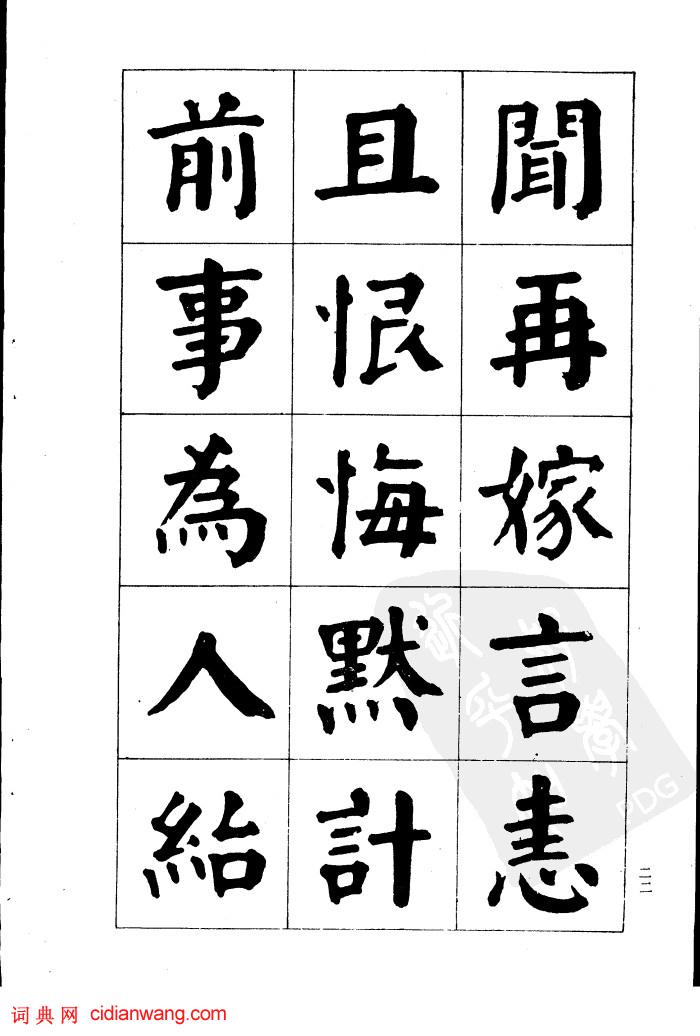 聞再嫁言恚
且恨悔默計
前事為人紿
二二
PDG
词典网 cidianwang.com